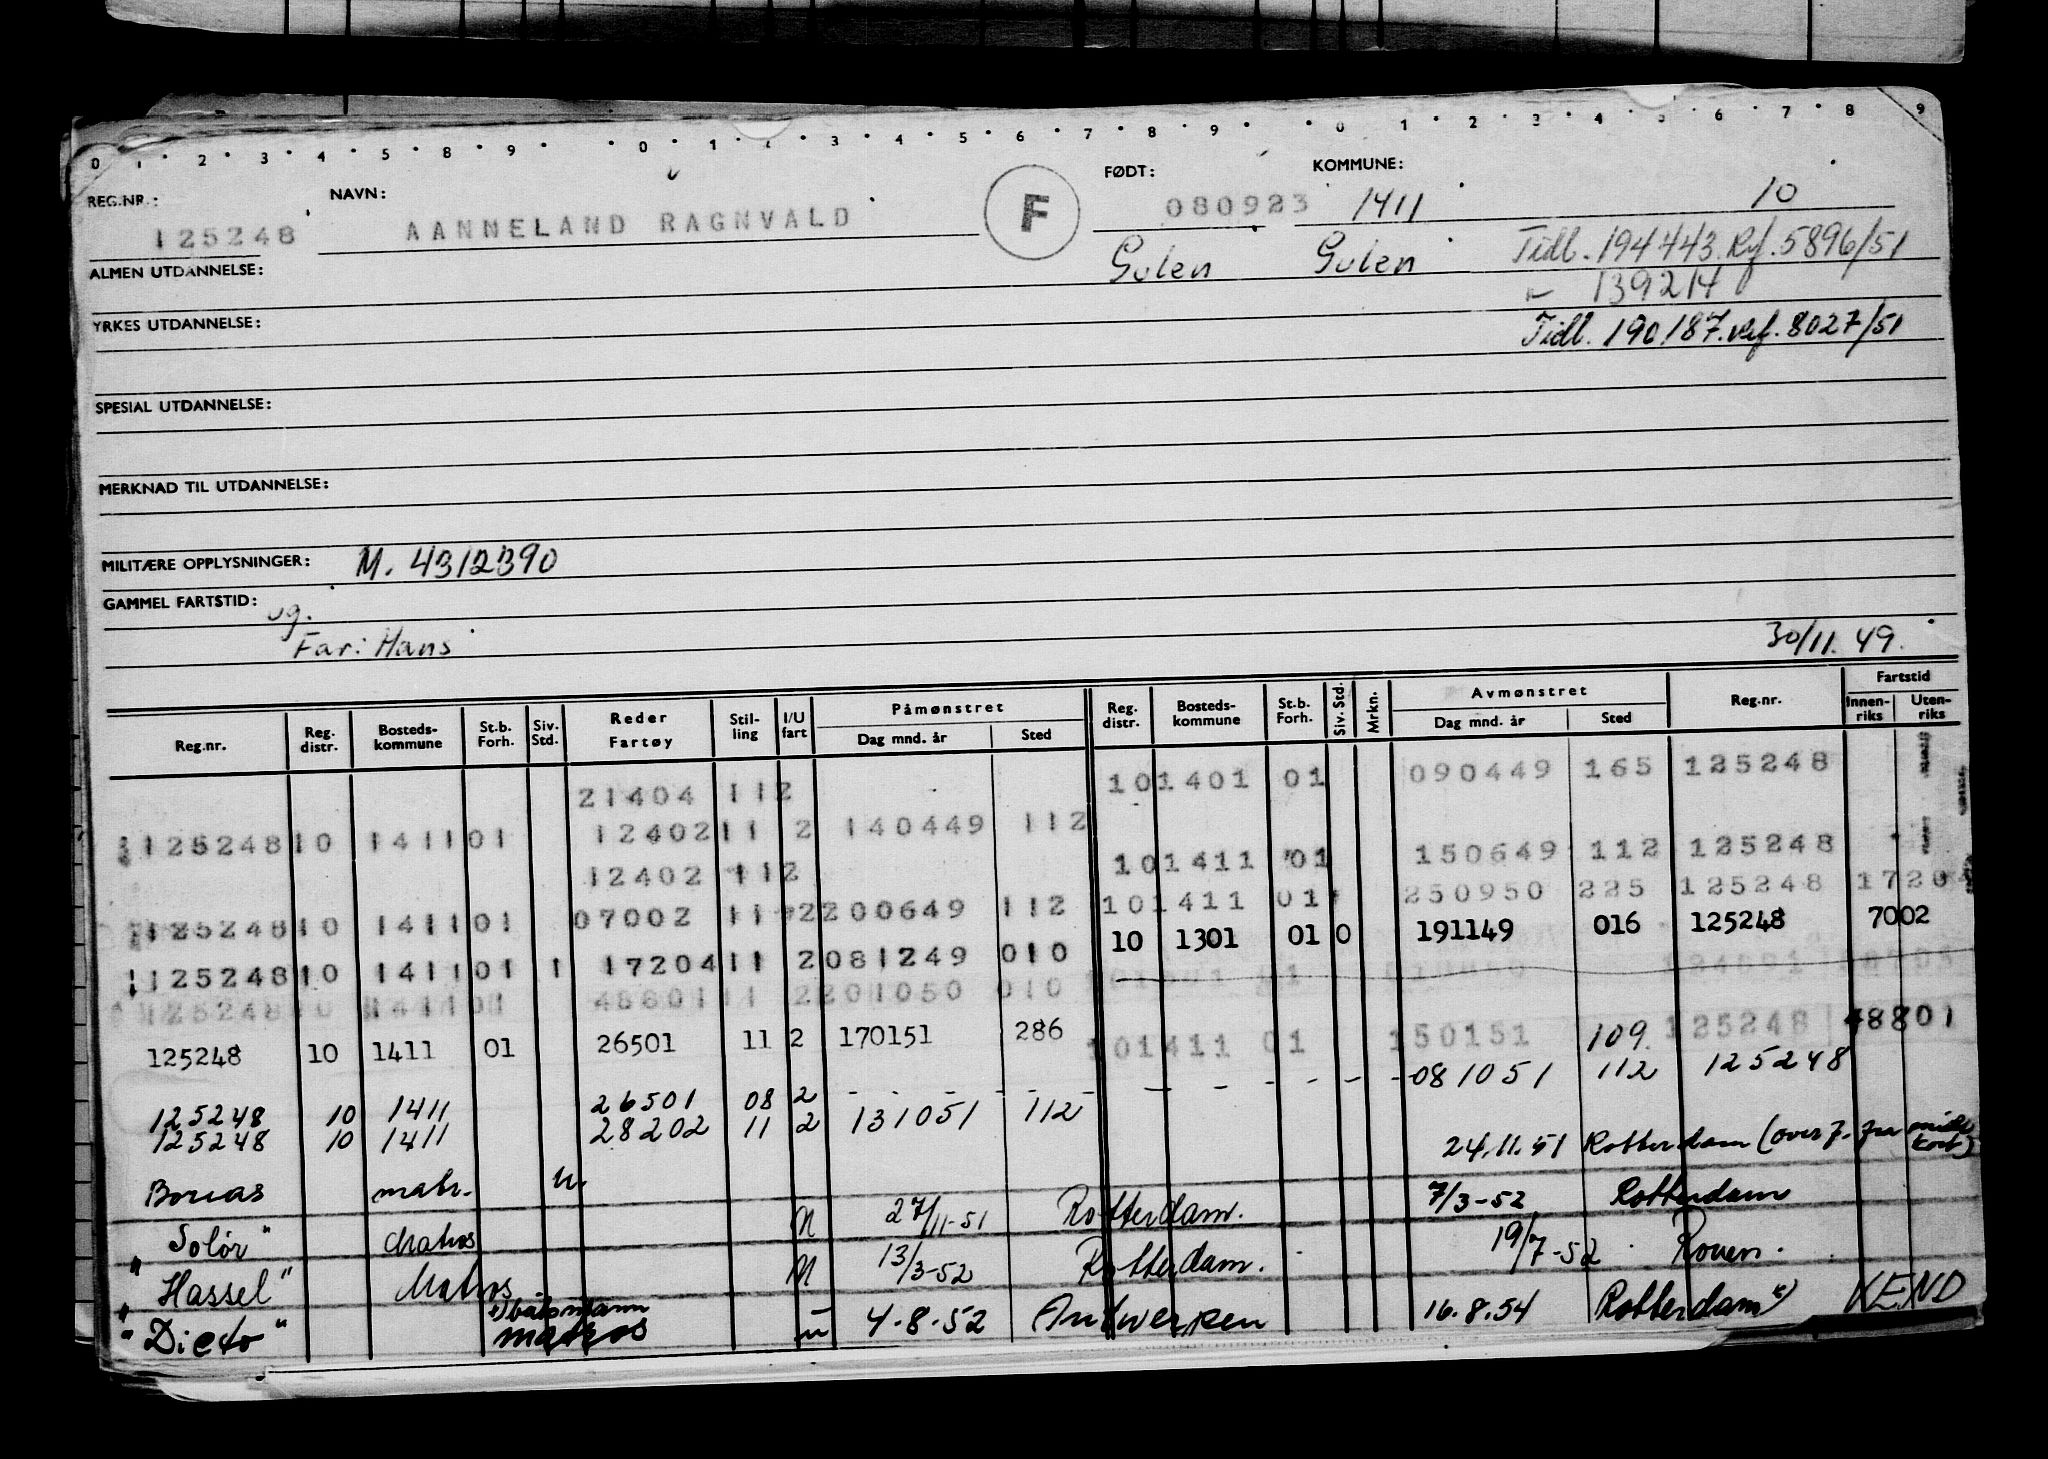 0 1 2 3 4 5 8 9 0 1 2 3 4 5 6 7 8 9 0 1 2 3 4 5 6 7 8 9
REG.NR.: NAVN: F FØDT: KOMMUNE:
125248 AANNELAND RAGNVALD 080923 1411 10
ALMEN UTDANNELSE: Gulen Gulen Tidl. 194443 Ref. 5896/51
139214
YRKES UTDANNELSE: Tidl. 190187. ref. 8027/51
SPESIAL UTDANNELSE:
MERKNAD TIL UTDANNELSE:
MILITÆRE OPPLYSNINGER: M. 4312390
GAMMEL FARTSTID: ug.
Far: Hans 30/11.49.
Reg.nr. Reg. distr. Bosteds- kommune St.b. Forh. Siv. Std. Reder Fartøy Stil- ling I/U fart Påmønstret Dag mnd. år Sted Reg. distr. Bosteds- kommune St.b. Forh. Siv. Std. Mrkn. Avmønstret Dag mnd. år Sted Reg.nr. Fartstid Innen- riks Uten- riks
21404 112 101401 01 090449 165 125248
125248 10 1411 01 12402 11 2 140449 112
12402 112 101411 01 150649 112 125248
125248 10 1411 01 07002 11 2 200649 112 101411 01 250950 225 125248 1720
10 1301 01 0 191149 016 125248 7002
125248 10 1411 01 1 17204 11 2 081249 010
125248 10 1411 01 48801 11 2 201050 010
125248 10 1411 01 26501 11 2 170151 286 101411 01 150151 109. 125248 48801
081051 112 125248
125248 10 1411 26501 08 2
125248 10 1411 28202 11 2 131051 112
24.11.51 Rotterdam (overf. fra midl. kort)
Boreas matr. u. 7/3-52 Rotterdam
"Solør" Matros N 27/11-51 Rotterdam. 19/7-52 Rouen.
"Hassel" Matros N 13/3-52 Rotterdam.
"Dicto" x) båtsmann matros u 4.8.52 Antwerpen 16.8.54 Rotterdam x) VEND